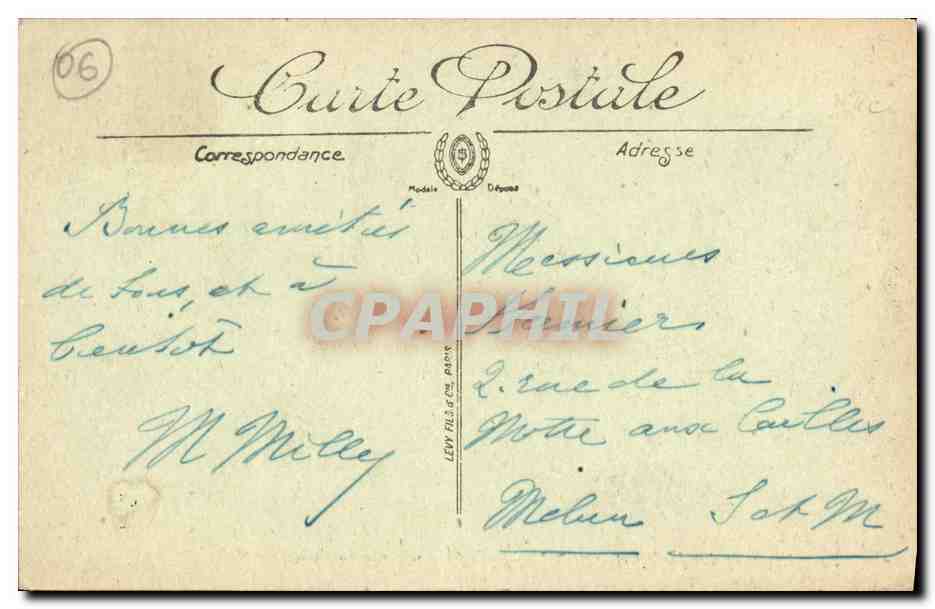 06
Carte Postale
Correspondance
Adresse
Modèle Déposé
Bonnes amitiés
de tous, et à
bentôt
M Milly
LEVY FILS & Cie, PARIS
Messieurs
2. rue de la
Motte aux Cailles
Melun S et M
CPAPHIL